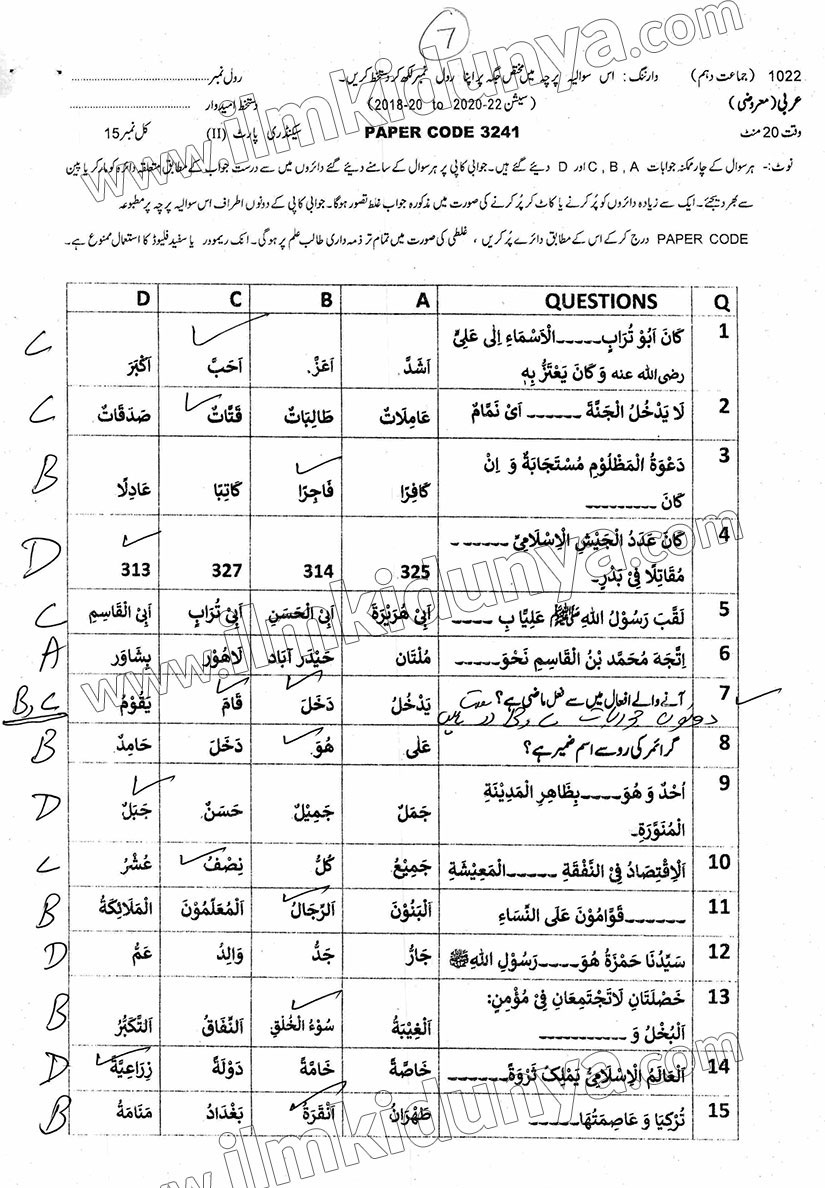 7
1022 (جماعت دہم) وارننگ: اس سوالیہ پرچہ میں مختص جگہ پر اپنا رول نمبر لکھ کر دستخط کریں۔ رول نمبر
عربی (معروضی) (سیشن 20-2018 to 22-2020) دستخط امیدوار
وقت 20 منٹ PAPER CODE 3241 سیکنڈری پارٹ (II) کل نمبر 15
نوٹ:- ہر سوال کے چار ممکنہ جوابات C , B , A اور D دیئے گئے ہیں۔ جوابی کاپی پر ہر سوال کے سامنے دیئے گئے دائروں میں سے درست جواب کے مطابق متعلقہ دائرہ کو مارکر یا پین
سے بھر دیجئے۔ ایک سے زیادہ دائروں کو پُر کرنے یا کاٹ کر پُر کرنے کی صورت میں مذکورہ جواب غلط تصور ہوگا۔ جوابی کاپی کے دونوں اطراف اس سوالیہ پرچہ پر مطبوعہ
PAPER CODE درج کر کے اس کے مطابق دائرے پُر کریں ، غلطی کی صورت میں تمام تر ذمہ داری طالب علم پر ہوگی۔ انک ریمور یا سفید فلیوڈ کا استعمال ممنوع ہے۔
Q QUESTIONS A B C D
1 كَانَ اَبُوْ تُرَابٍ-----الْاَسْمَاءِ اِلٰى عَلِىٍّ
رضى الله عنه وَ كَانَ يَعْتَزُّ بِهٖ اَشَدَّ اَعَزَّ اَحَبَّ اَكْبَرَ C
2 لَا يَدْخُلُ الْجَنَّةَ ------ اَىْ نَمَّامٌ عَامِلَاتٌ طَالِبَاتٌ قَتَّاتٌ صَدَقَاتٌ C
3 دَعْوَةُ الْمَظْلُوْمِ مُسْتَجَابَةٌ وَ اِنْ
كَانَ --------- كَافِرًا فَاجِرًا كَاتِبًا عَادِلًا B
4 كَانَ عَدَدُ الْجَيْشِ الْاِسْلَامِىِّ ------
مُقَاتِلًا فِىْ بَدْرٍ۔ 325 314 327 313 D
5 لَقَّبَ رَسُوْلُ اللهِ ﷺ عَلِيًّا بِ ---- اَبِىْ هُرَيْرَةَ اَبِىْ الْحَسَنِ اَبِىْ تُرَابٍ اَبِىْ الْقَاسِمِ C
6 اِتَّجَهَ مُحَمَّدُ بْنُ الْقَاسِمِ نَحْوَ------ مُلْتَان حَيْدَر آبَاد لَاهُوْر بِشَاوَر A
7 آنے والے افعال میں سے فعل ماضی ہے؟ يَدْخُلُ دَخَلَ قَامَ يَقُوْمُ B,C
8 گرائمر کی رو سے اسم ضمیر ہے؟ عَلٰى هُوَ دَخَلَ حَامِدٌ B
9 اُحُدٌ وَ هُوَ-----بِظَاهِرِ الْمَدِيْنَةِ
الْمُنَوَّرَةِ۔ جَمَلٌ جَمِيْلٌ حَسَنٌ جَبَلٌ D
10 اَلْاِقْتِصَادُ فِىْ النَّفْقَةِ -----الْمَعِيْشَةِ جَمِيْعُ كُلُّ نِصْفُ عُشْرُ C
11 -------قَوَّامُوْنَ عَلَى النِّسَاءِ اَلْبَنُوْنَ اَلرِّجَالُ اَلْمُعَلِّمُوْنَ اَلْمَلَائِكَةُ B
12 سَيِّدُنَا حَمْزَةُ هُوَ----رَسُوْلِ اللهِ ﷺ جَارُّ جَدُّ وَالِدُ عَمُّ D
13 خَصْلَتَانِ لَاتَجْتَمِعَانِ فِىْ مُؤْمِنٍ:
اَلْبُخْلُ وَ --------- اَلْغِيْبَةُ سُوْءُ الْخُلُقِ اَلنِّفَاقُ اَلتَّكَبُّرُ B
14 اَلْعَالَمُ الْاِسْلَامِىُّ يَمْلِكُ ثَرْوَةً------ خَاصَّةً خَامَّةً دَوْلَةً زِرَاعِيَّةً D
15 تُرْكِيَا وَ عَاصِمَتُهَا----- طَهْرَانُ اَنْقَرَةُ بَغْدَادُ مَنَامَةُ B
www.ilmkidunya.com
www.ilmkidunya.com
www.ilmkidunya.com
www.ilmkidunya.com